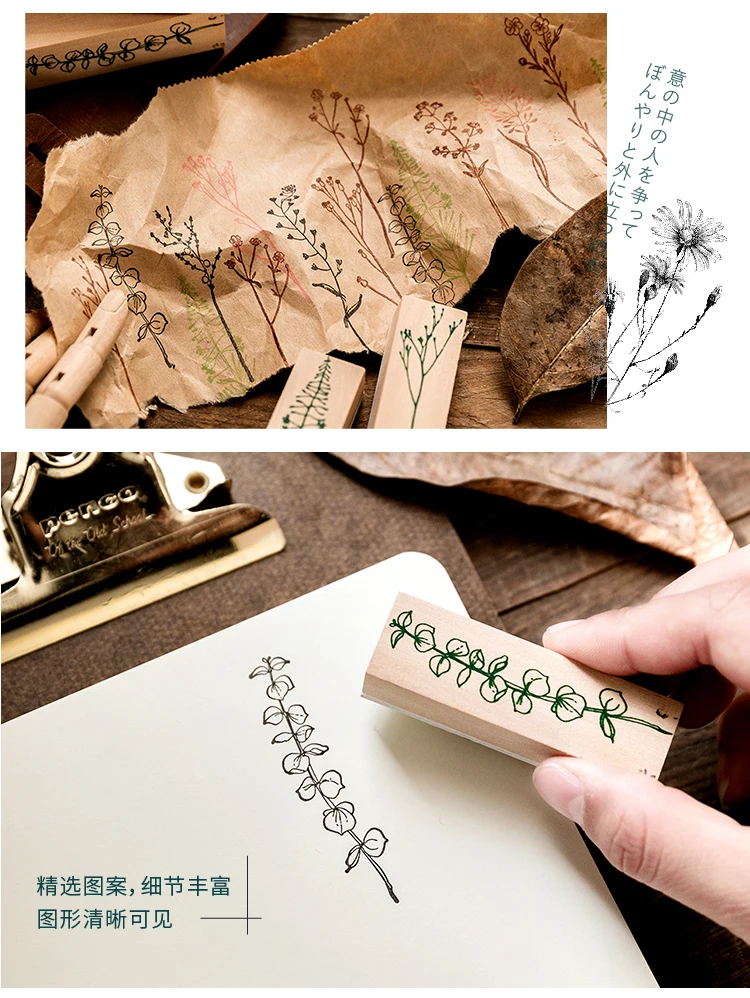 意の中の人を争って
ぼんやりと外に立つ
penco
精选图案，细节丰富
图形清晰可见